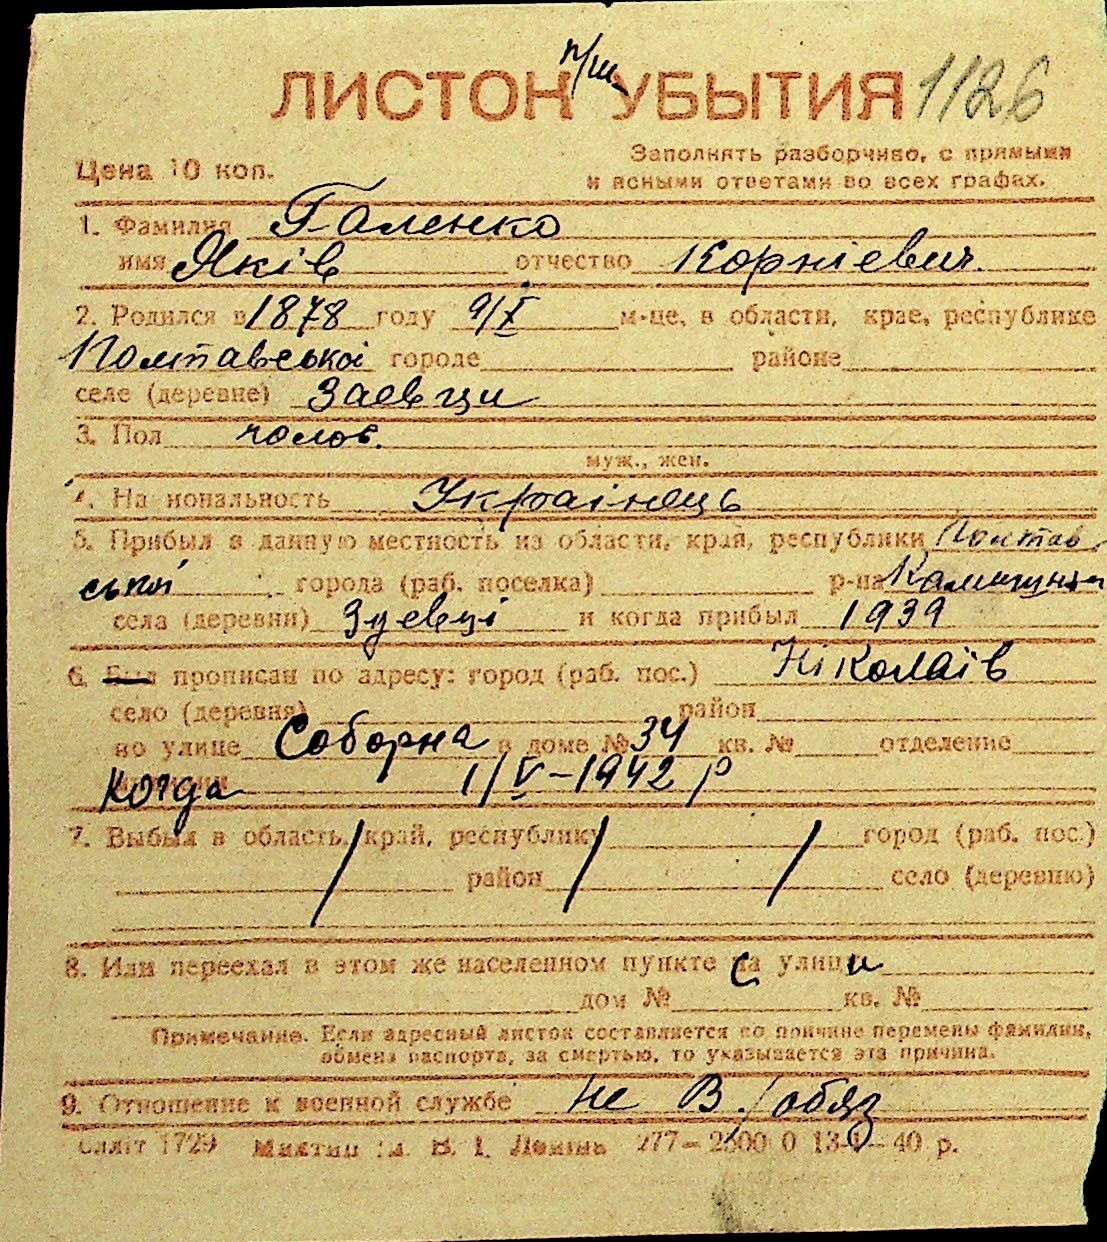 п/ш
ЛИСТОК УБЫТИЯ 1126
Цена 10 коп.
Заполнять разборчиво, с прямыми
и ясными ответами во всех графах.
1. Фамилия Галенко
имя Яків отчество Корнієвич.
2. Родился в 1878 году 9/X м-це, в области, крае, республике
Полтавської городе районе
селе (деревне) Заевци
3. Пол чолов.
муж., жен.
4. На иональность Українець
5. Прибыл в данную местность из области, край, республики Полтав
ської города (раб. поселка) р-на
села (деревни) Зуевці и когда прибыл 1939
6. прописан по адресу: город (раб. пос.) Ніколаїв
село (деревня) район
во улице Соборна в доме № 34 кв. № отделение
Когда 1/V-1942 р
7. Выбыл в область, край, республику город (раб. пос.)
район село (деревню)
8. Или переехал в этом же населенном пункте са улици
дом № кв. №
Примечание. Если адресный листок составляется по причине перемены фамилии,
обмена паспорта, за смертью, то указывается эта причина.
9. Отношение к военной службе не В/обяз
1729 В. І. 277— 2500 0 13- 40 р.